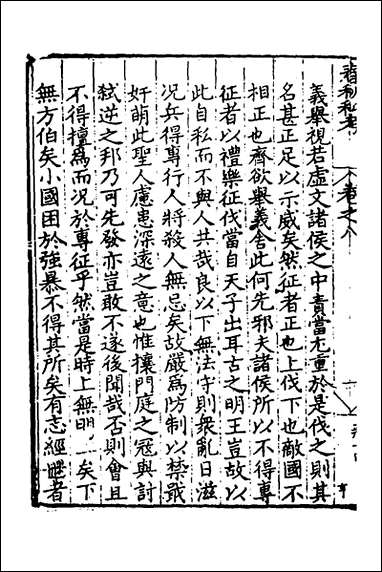 春秋私考 卷之八
義舉視若虛文諸侯之中責當尤重於是伐之則其
名甚正足以示威矣然征者正也上伐下也敵國不
相正也齊欲舉義舍此何先邪夫諸侯所以不得專
征者以禮樂征伐當自天子出耳古之明王豈故以
此自私而不與人共哉良以下無法守則衆亂日滋
况兵得專行人將殺人無忌矣故嚴爲防制以禁戢
奸萌此聖人慮患深遠之意也惟攘門庭之寇與討
弑逆之邦乃可先發亦豈敢不遂後聞哉否則會且
不得擅爲而况於專征乎然當是時上無明 矣下
無方伯矣小國困於強暴不得其所矣有志經 者